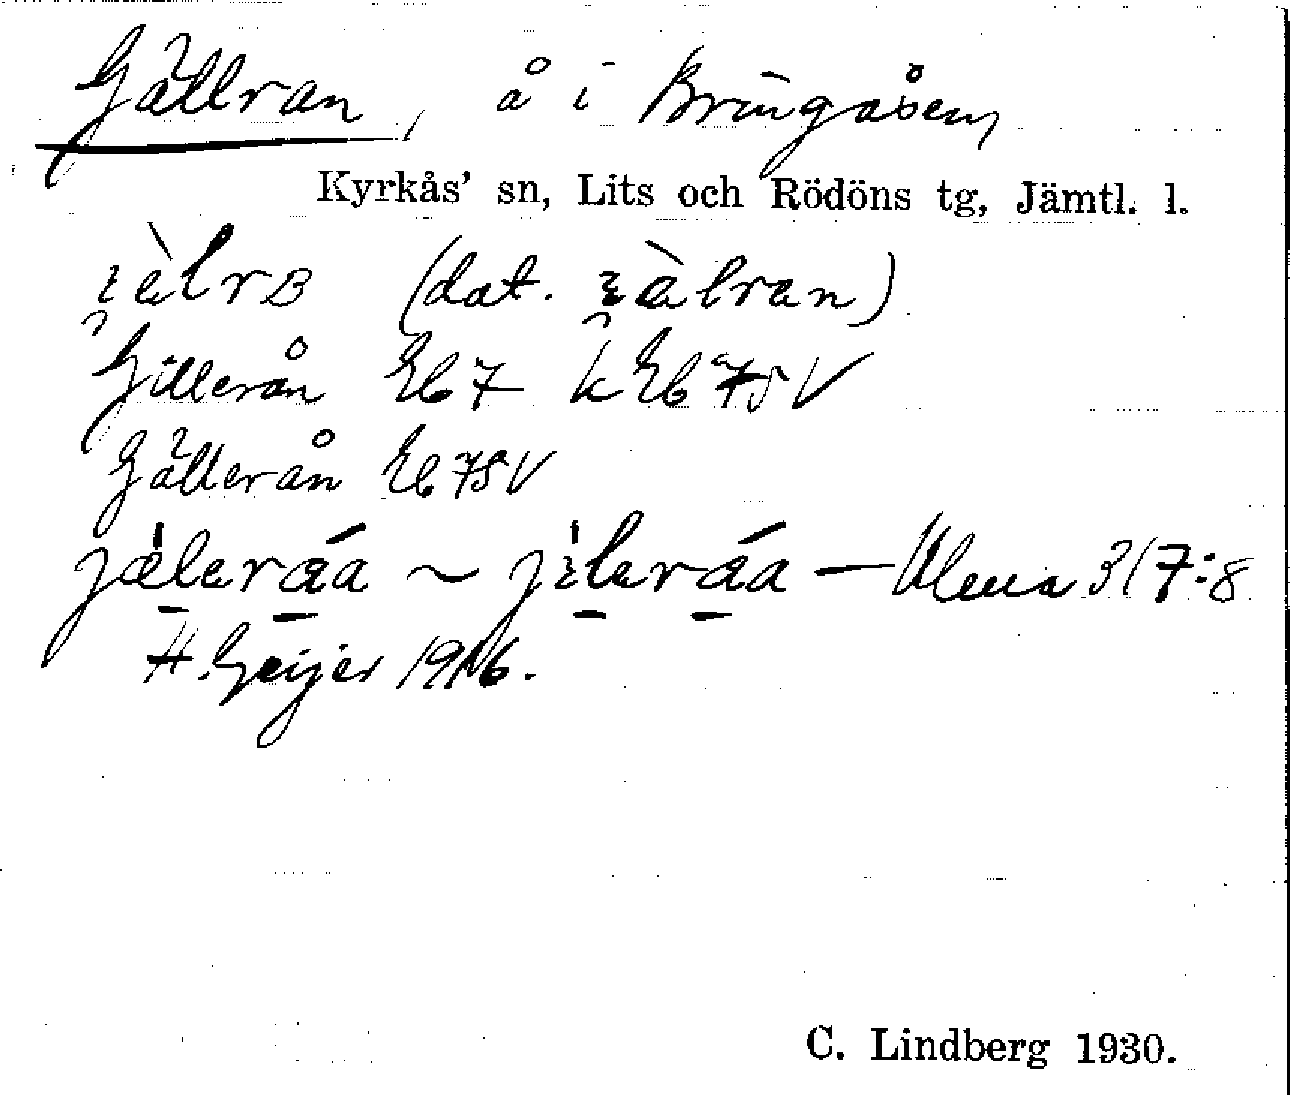 Gällran, å i Bringåsen,
Kyrkås' sn, Lits och Rödöns tg, Jämtl. l.
(dat.
Gillerån Eb 7 k Eb 75 V
Gällerån Eb 75 V
jæleráa ~ jileráa — Ulena 3/7:8
H. Geijer 1916.
C. Lindberg 1930.